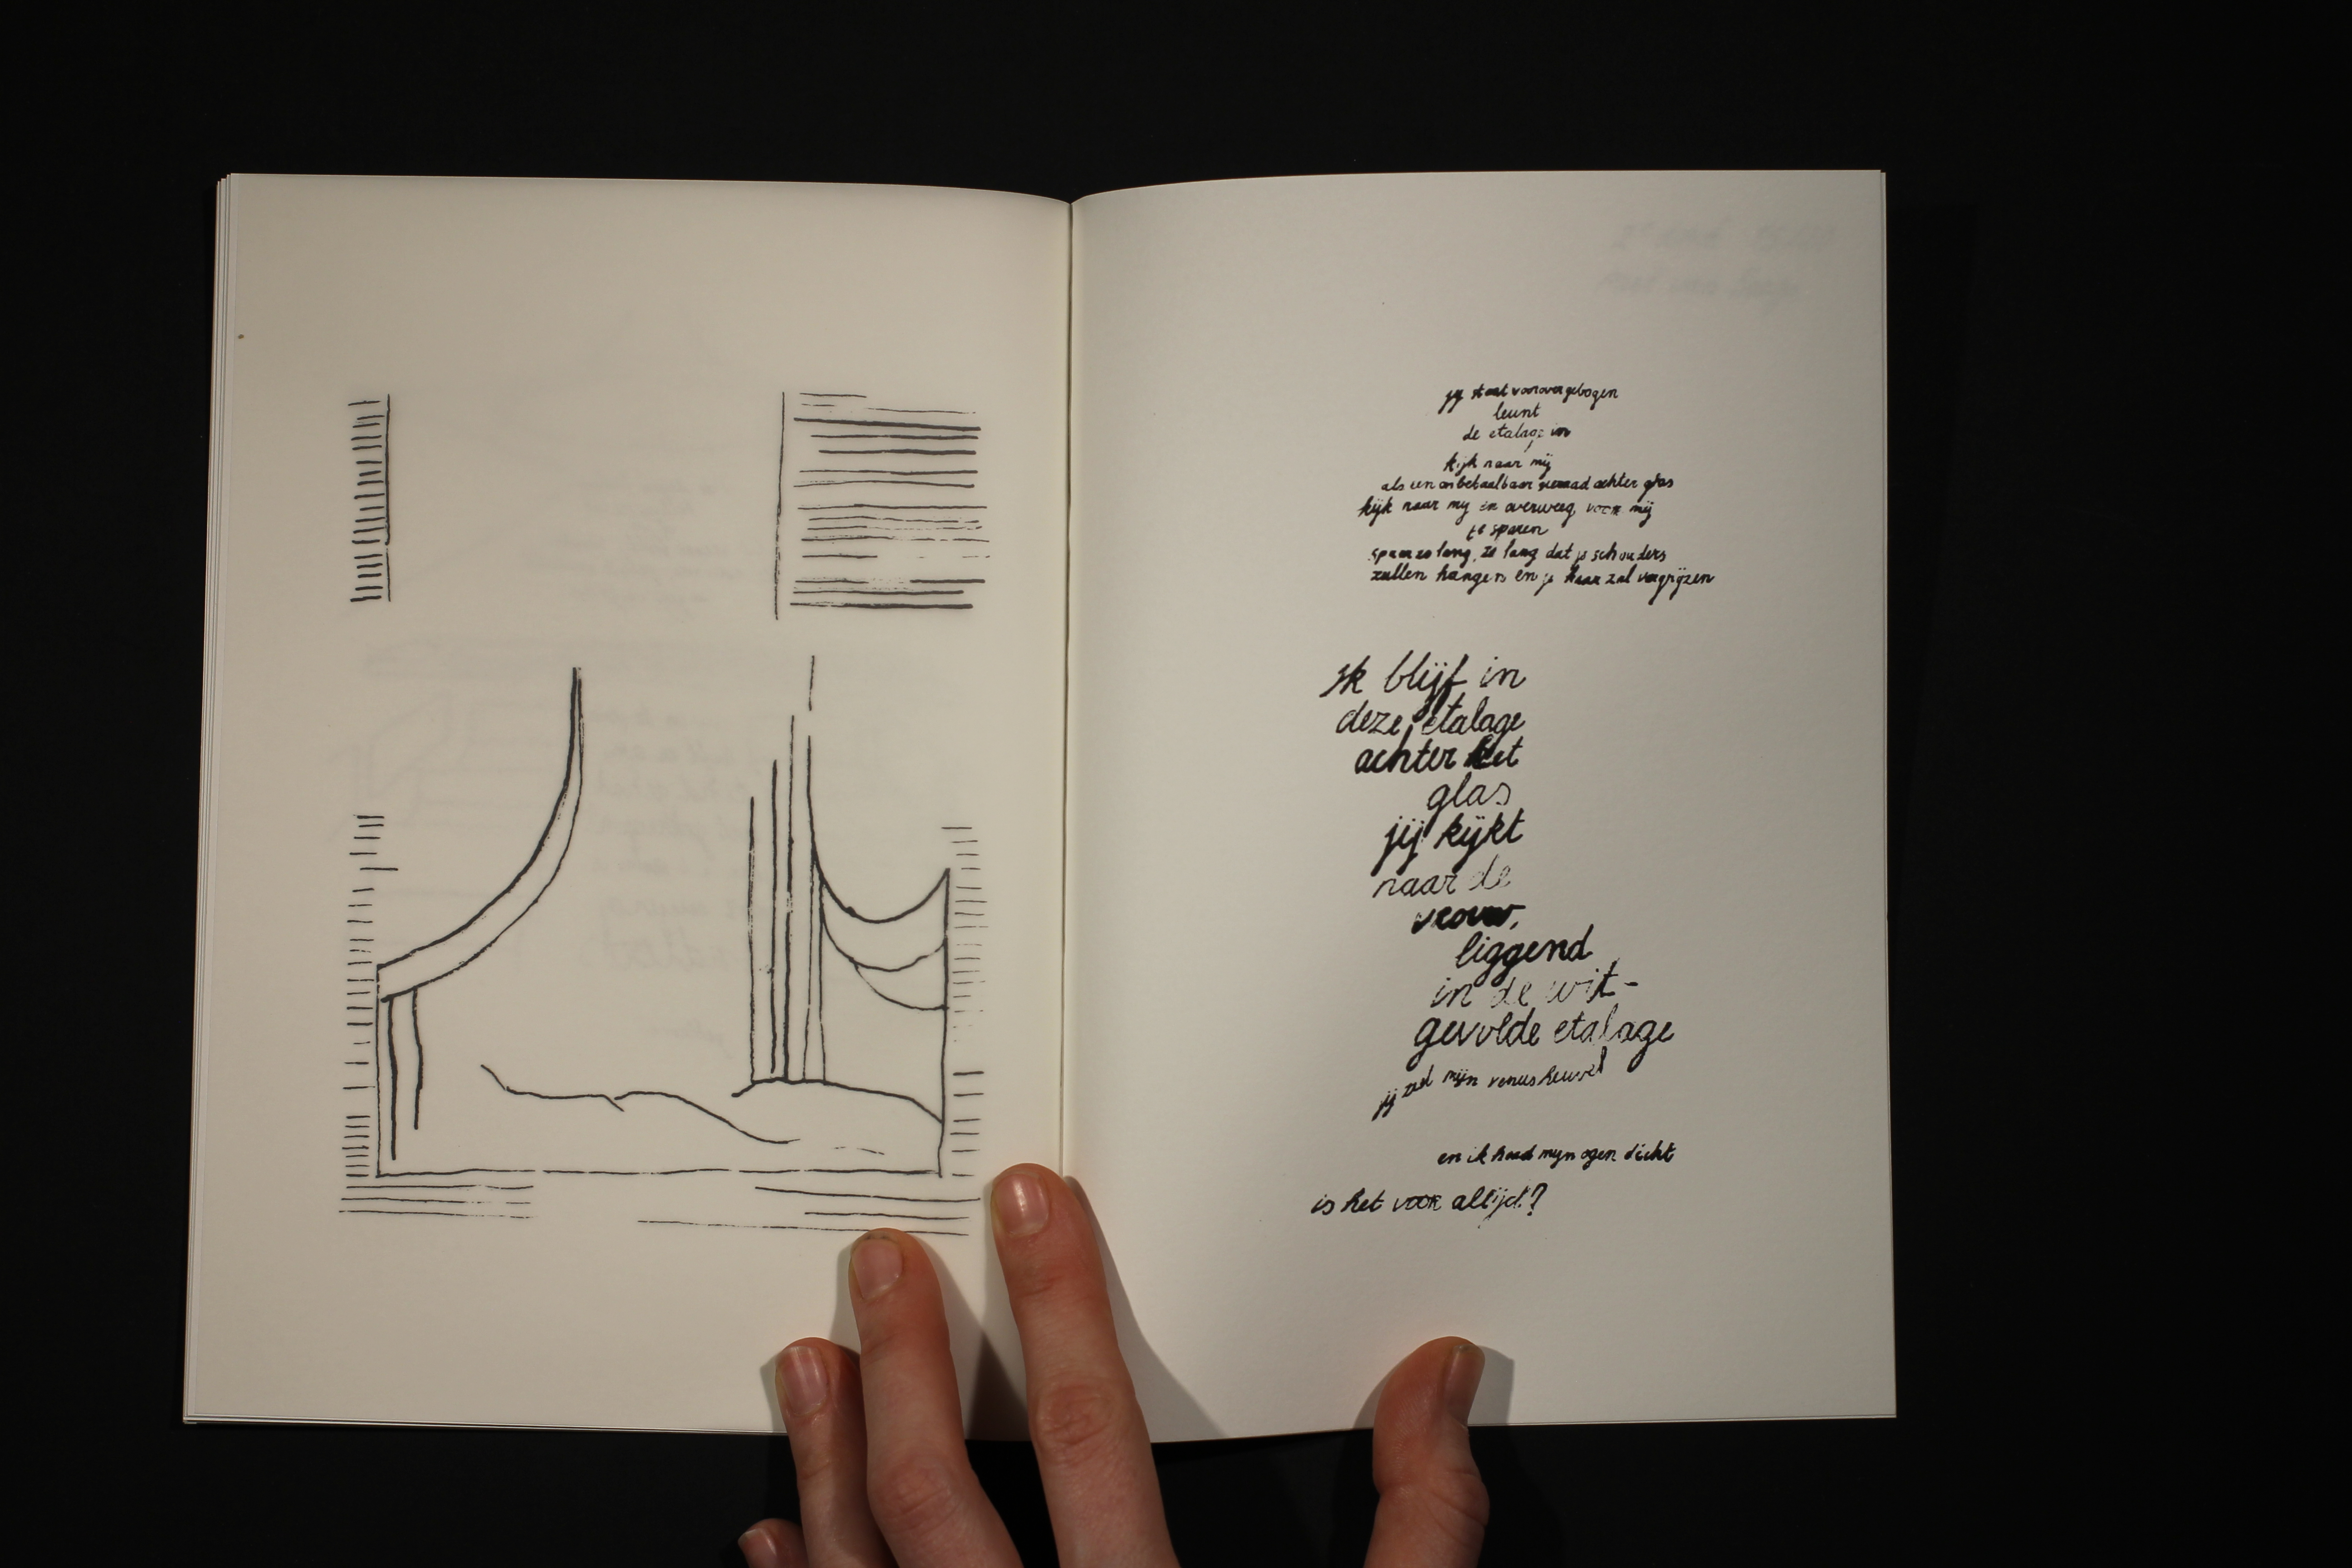 jij staat voorovergebogen
leunt
de etalage in
kijk naar mij
als een onbetaalbaar sieraad achter glas
kijk naar mij en overweeg voor mij
te sparen
spaar zo lang, zo lang dat je schouders
zullen hangen en je haar zal vergrijzen
ik blijf in
deze etalage
achter het
glas
jij kijkt
naar de
vrouw,
liggend
in de wit-
gevolde etalage
jij zed mijn venusheuvel
en ik houd mijn ogen dicht
is het voor altijd?